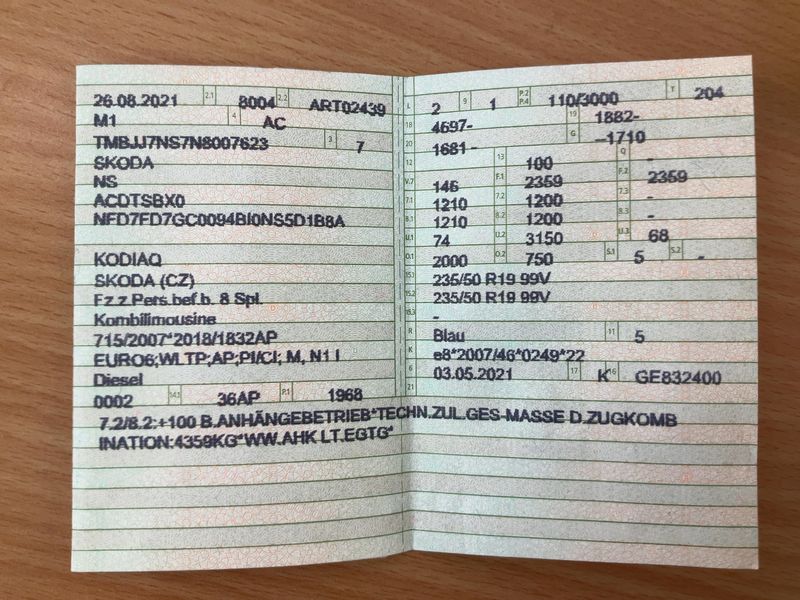 26.08.2021 2.1 8004 2.2 ART02439
M1 4 AC
TMBJJ7NS7N8007623 3 7
SKODA
NS
ACDTSBX0
NFD7FD7GC0094BI0NS5D1B8A
KODIAQ
SKODA (CZ)
Fz.z.Pers.bef.b. 8 Spl.
Kombilimousine
715/2007*2018/1832AP
EURO6;WLTP;AP;PI/CI; M, N1 I
Diesel
0002 14.1 36AP P.1 1968
L 2 9 1 P.2 P.4 110/3000 T 204
18 4697- 19 1882-
20 1681- G –1710
12 - 13 100 Q -
V.7 146 F.1 2359 F.2 2359
7.1 1210 7.2 1200 7.3 -
8.1 1210 8.2 1200 8.3 -
U.1 74 U.2 3150 U.3 68
O.1 2000 O.2 750 S.1 5 S.2 -
15.1 235/50 R19 99V
15.2 235/50 R19 99V
15.3 -
R Blau 11 5
K e8*2007/46*0249*22
6 03.05.2021 17 K 16 GE832400
21
7.2/8.2:+100 B.ANHÄNGEBETRIEB*TECHN.ZUL.GES-MASSE D.ZUGKOMB
INATION:4359KG*WW.AHK LT.EGTG*